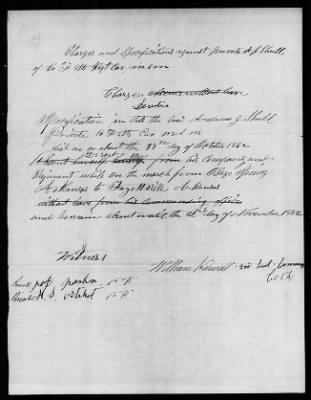 Charges and Specifications against private A J Shull
of Co H 8th Regt Cav M S M
Charge Absence without leave
Desertion
Specification in that the said Andrew J Shull
Private Co H 8th Cav M S M
did on or about the 23rd day of October 1862
Absent himself Desert from his Company and
Regiment while on the march from Osage Springs
Arkansas to Fayetteville Arkansas
without leave from his commanding officer
and remain absent until the day of November 1862
Witness
William 2nd Lieut Comdg
Co H
Co H
Co H